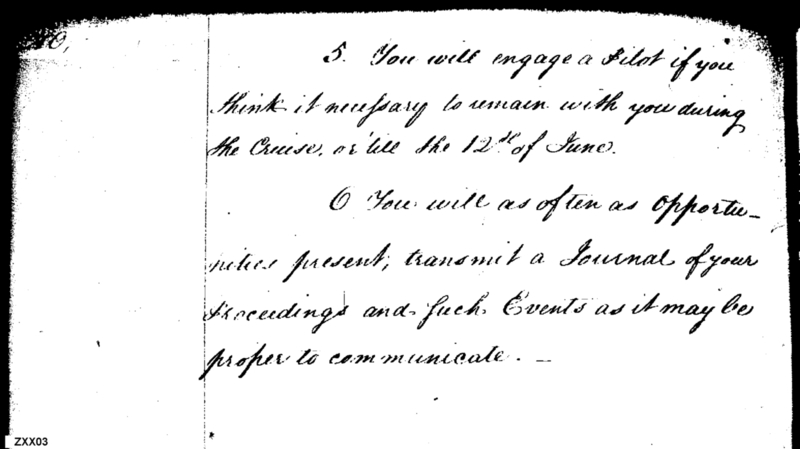 5. You will engage a Pilot if you
think it necessary to remain with you during
the Cruise, or 'till the 12th of June.
6 You will as often as opportu-
nities present, transmit a Journal of your
Proceedings and such Events as it may be
proper to communicate. —
ZXX03